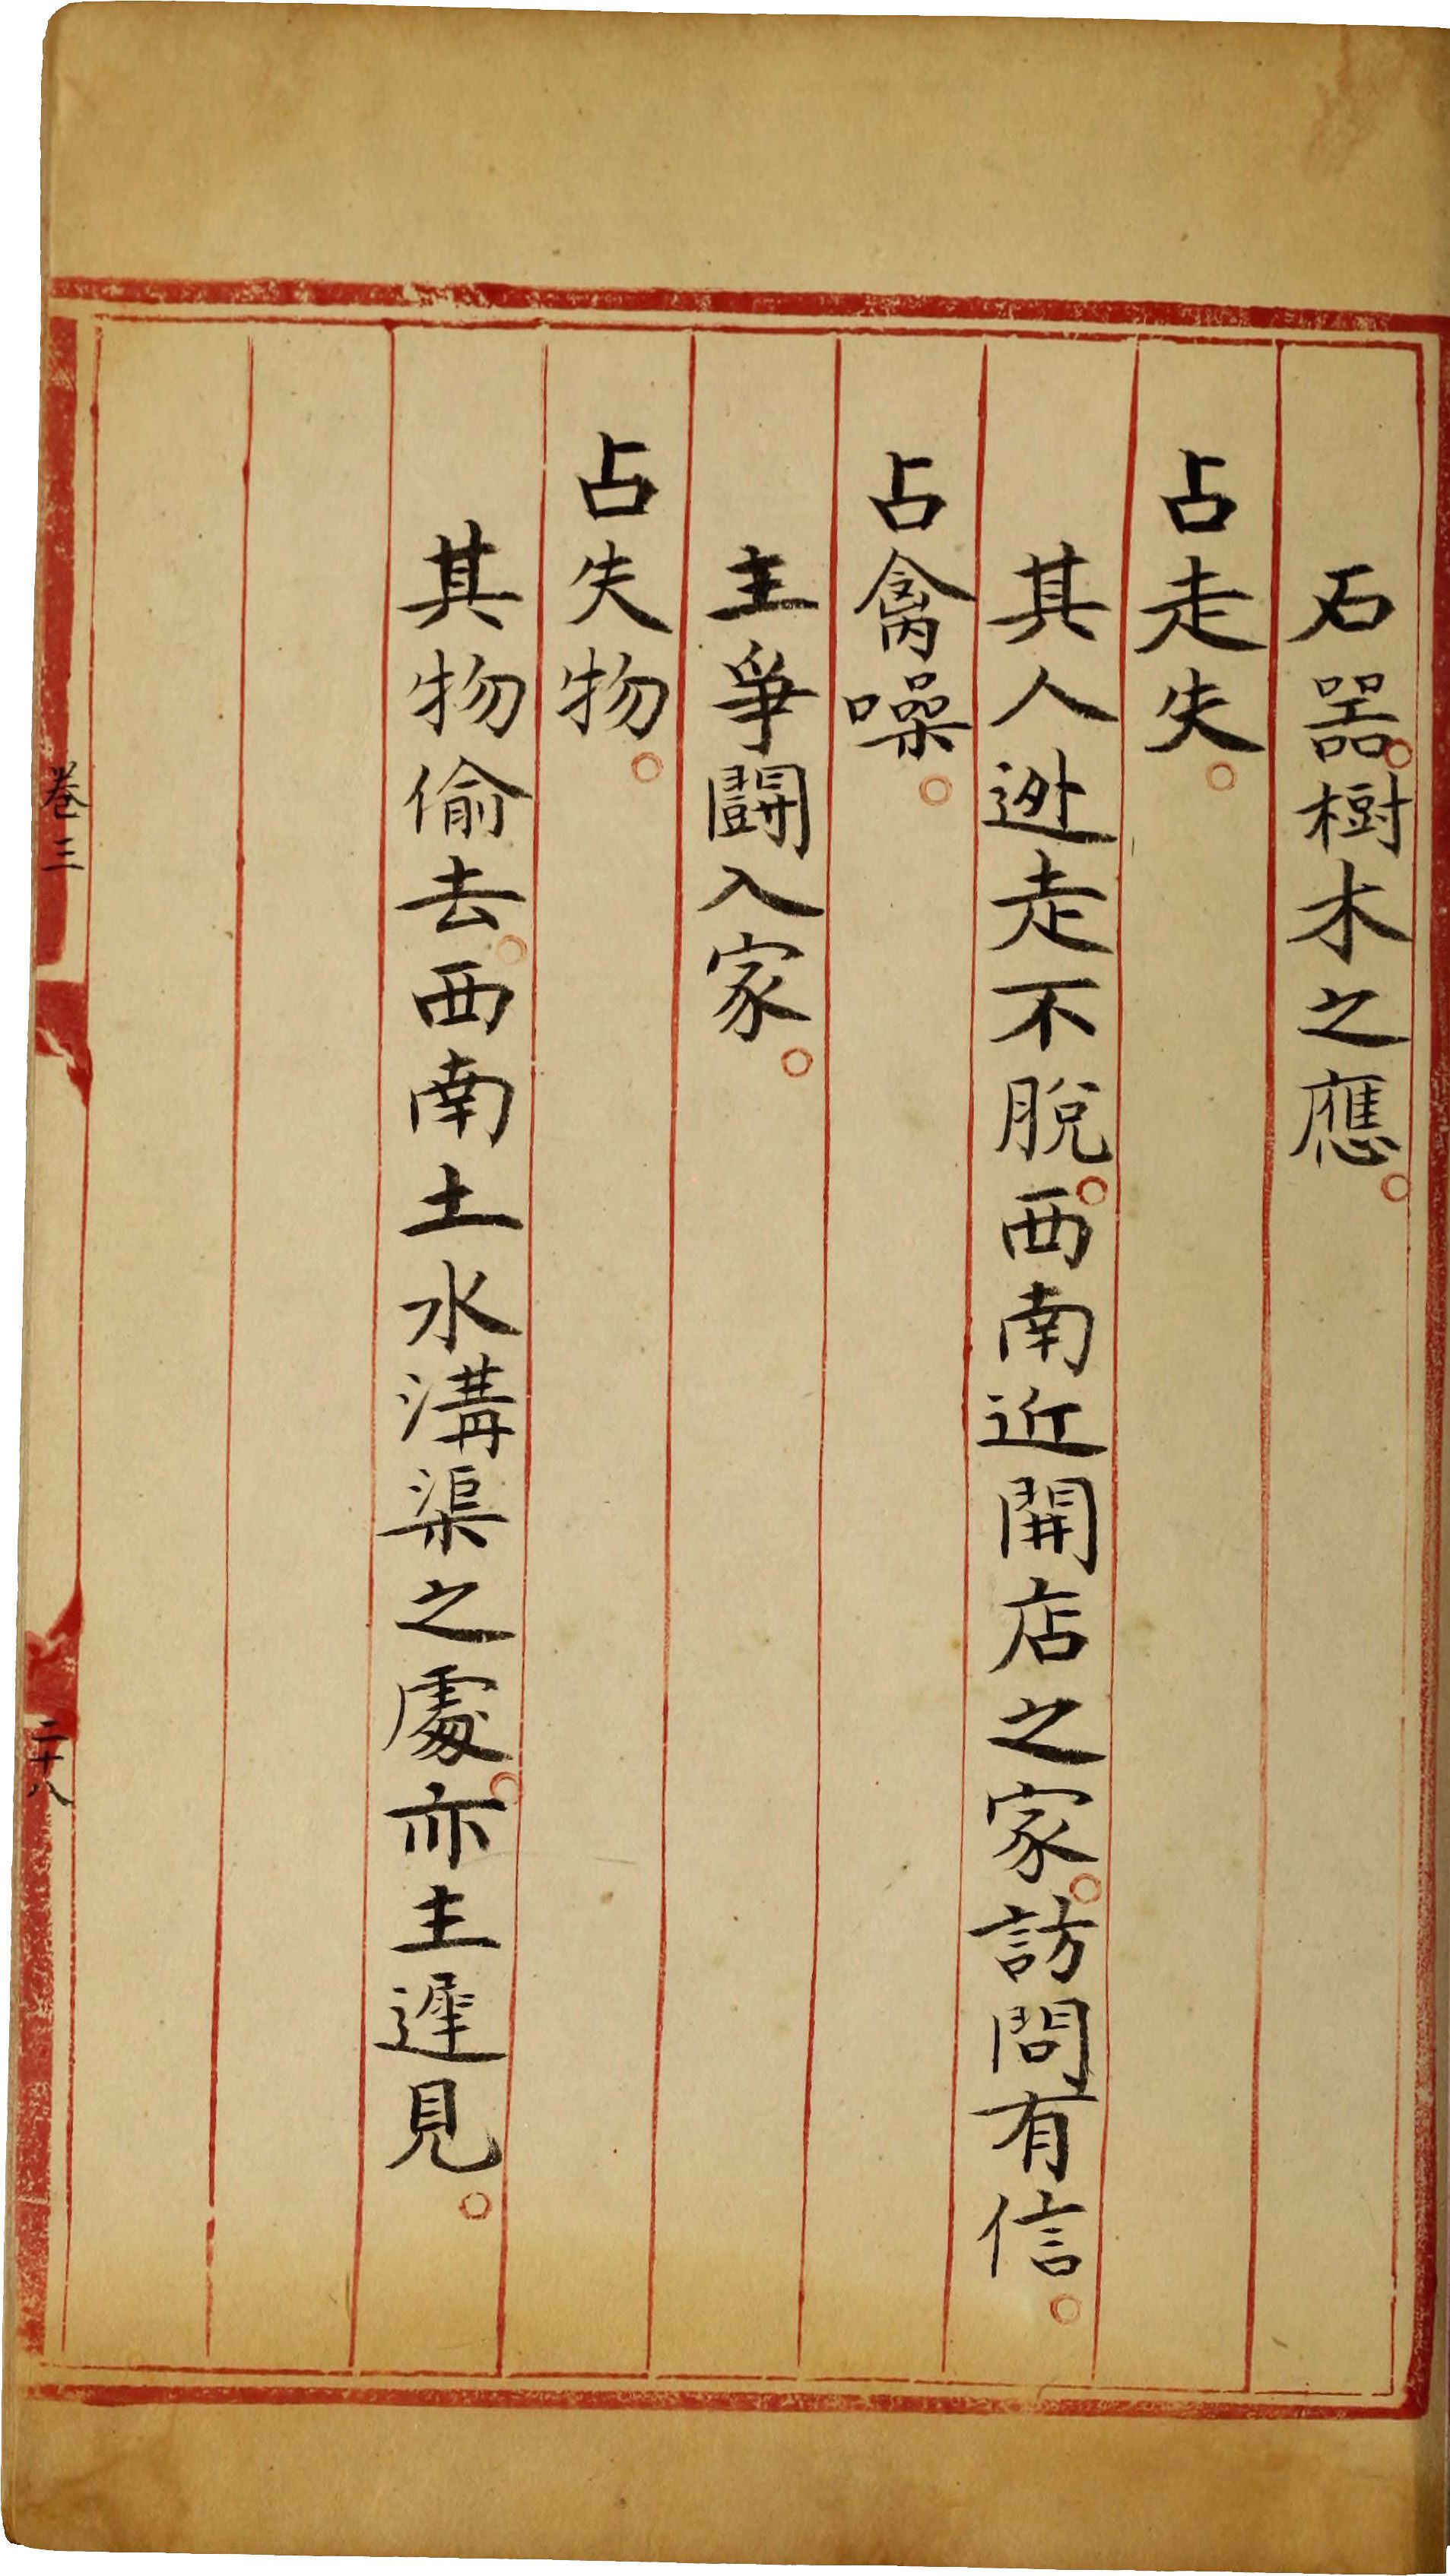 石器。樹木之應。
占走失。
其人逃走不脫。西南近開店之家。訪問有信。
占禽噪。
主爭鬪入家。
占失物。
其物偷去。西南土水溝渠之處。亦主遲見。
卷三
二十八